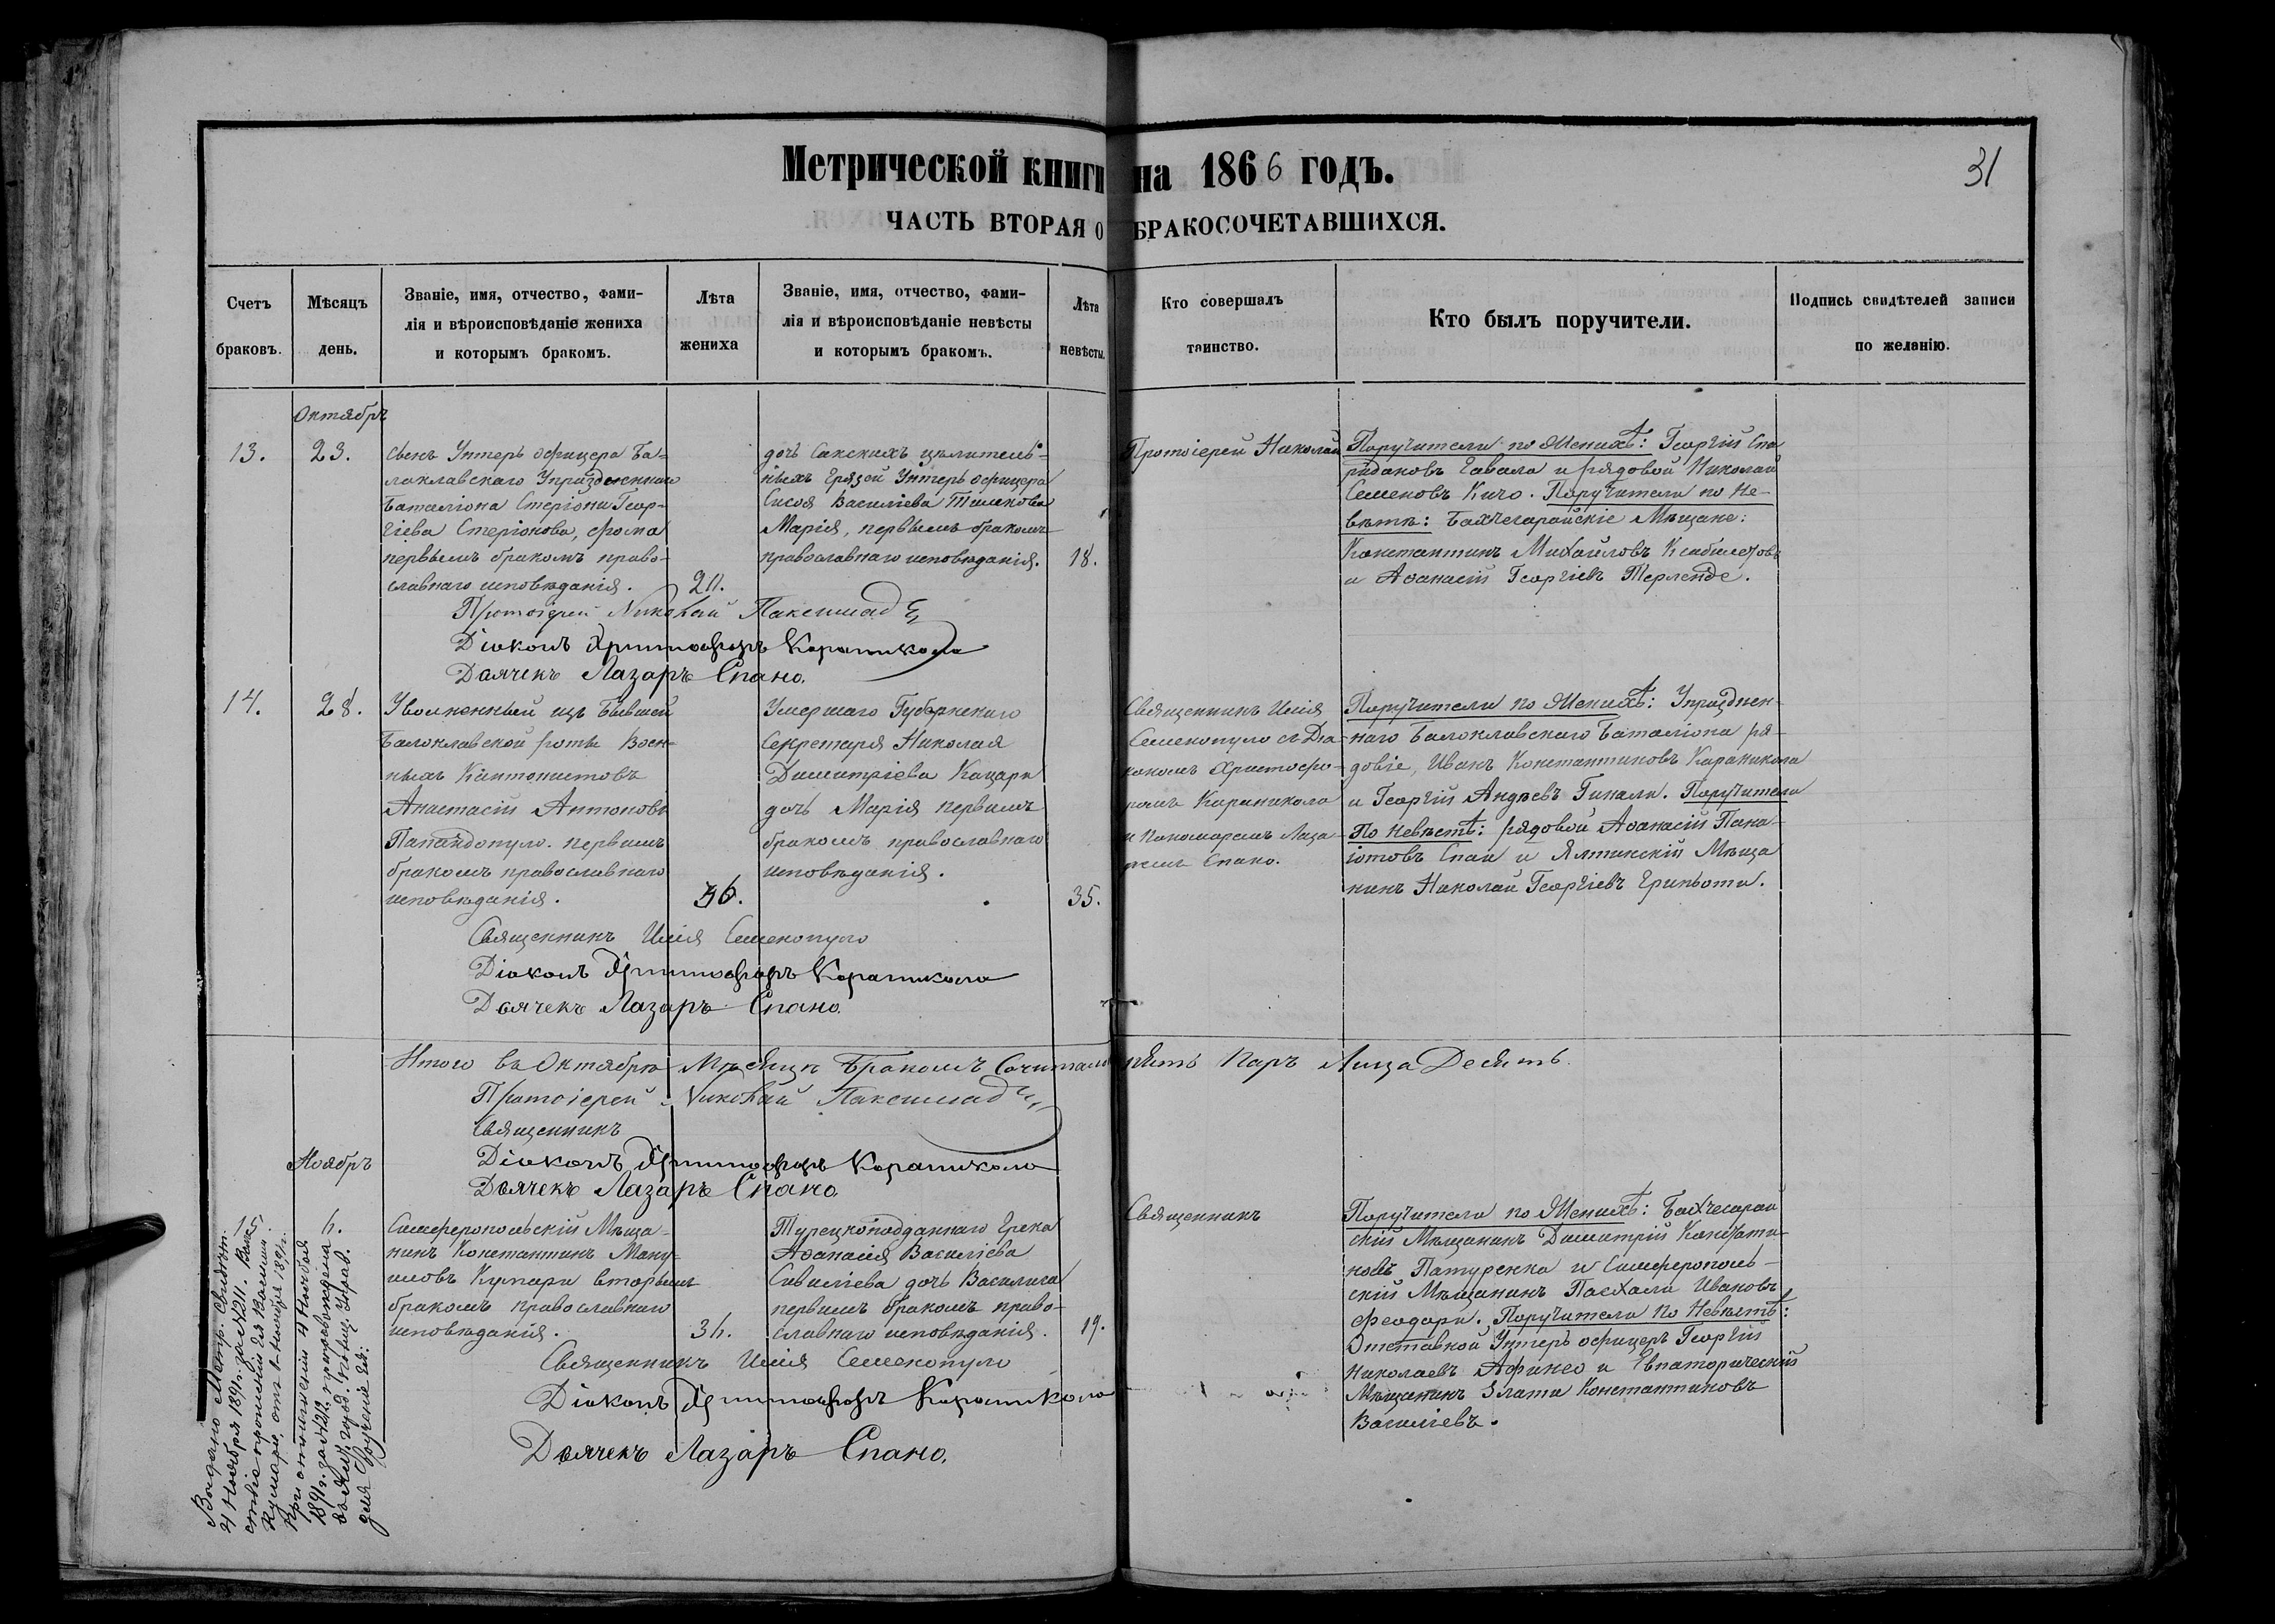 Метрической книги на 1866 годъ.
31
ЧАСТЬ ВТОРАЯ О БРАКОСОЧЕТАВШИХСЯ.
Счетъ браковъ.
Мѣсяцъ день.
Званіе, имя, отчество, фами-
лія и вѣроисповѣданіе жениха
и которымъ бракомъ.
Лѣта жениха
Званіе, имя, отчество, фами-
лія и вѣроисповѣданіе невѣсты
и которымъ бракомъ.
Лѣта невѣсты.
Кто совершалъ
таинство.
Кто былъ поручители.
Подпись свидѣтелей записи
по желанію.
Октябрь
13.
23.
сынъ Унтеръ офицера Ба-
лаклавскаго Упраздненнаго
Баталіона Стеріона Геор-
гіева Стеріонова, Фома
первымъ бракомъ право-
славнаго исповѣданія.
дочь Сакскихъ цѣлитель-
ныхъ Грязей Унтеръ офицера
Сисоя Василіева
Марія, первымъ бракомъ
православнаго исповѣданія.
18.
Протоіерей Николай
Поручители по Женихѣ: Георгій Спи
ридоновъ Гавала и рядовой Николай
Семеновъ Кичо. Поручители по Не-
вѣстѣ: Бахчесарайскіе Мѣщане:
Константинъ Михайловъ
и Аѳанасій Георгіевъ Терленде.
Протоіерей Николай Паксимад
Діаконъ Христофоръ Караникола
Дьячекъ Лазаръ Спано.
14.
28.
Уволненный изъ бывшей
Балаклавской роты Воен-
ныхъ Кантонистовъ
Анастасій Антоновъ
Папандопуло. первымъ
бракомъ православнаго
исповѣданія.
36.
Умершаго Губернскаго
Секретаря Николая
Димитріева Кацари
дочь Марія первымъ
бракомъ православнаго
исповѣданія.
35.
Священникъ Илія
Семенопуло съ Діа-
кономъ Христофо-
ромъ Караникола
и Пономаремъ Лаза-
ремъ Спано.
Поручители по Женихѣ: Упразднен-
наго Балаклавскаго Баталіона ря-
довіе, Иванъ Константиновъ Караникола
и Георгій Андревъ Гинали. Поручители
По Невѣстѣ: рядовой Аѳанасій Пана-
іотовъ Спаи и Ялтинскій Мѣща
нинъ Николай Георгіевъ Грипіоти.
Священникъ Илія Семенопуло
Діаконъ Христофоръ Караникола
Дьячекъ Лазаръ Спано.
Итого въ Октябрѣ Мѣсяцѣ Бракомъ Сочитались пять Паръ Лица Десять.
Протоіерей Николай Паксимад
Священникъ
Діаконъ Христофоръ Караникола
Дьячекъ Лазаръ Спано.
Ноябрь
15.
6.
Симферопольскій Мѣща-
нинъ Константинъ Ману-
иловъ Кумари вторымъ
бракомъ православнаго
исповѣданія.
Турецкоподданнаго Грека
Аѳанасія Василіева
дочь Василика
первымъ бракомъ право-
славнаго исповѣданія.
19.
Священникъ
Поручители по Женихѣ: Бахчесарай
скій Мѣщанинъ Димитрій
Патуренко и Симферополь-
скій Мѣщанинъ Пасхали Ивановъ
Феодори. Поручители По Невѣстѣ:
Отставной Унтеръ офицеръ Георгій
Николаевъ Афинео и Евпаторическій
Мѣщанинъ Злати Константиновъ
Василіевъ.
Священникъ Илія Семенопуло
Діаконъ Христофоръ Караникола
Дьячекъ Лазаръ Спано.
Выдано Метр. Свидѣт.
4 Ноября 1891 г. за № 211.
прошенія
Кумари, отъ 1 Ноября 1891 г.
При отношеніи 4 Ноября
1891 г. за № 212, препровождена
въ Ялт. город. полиц. Управ.
для врученія ея.